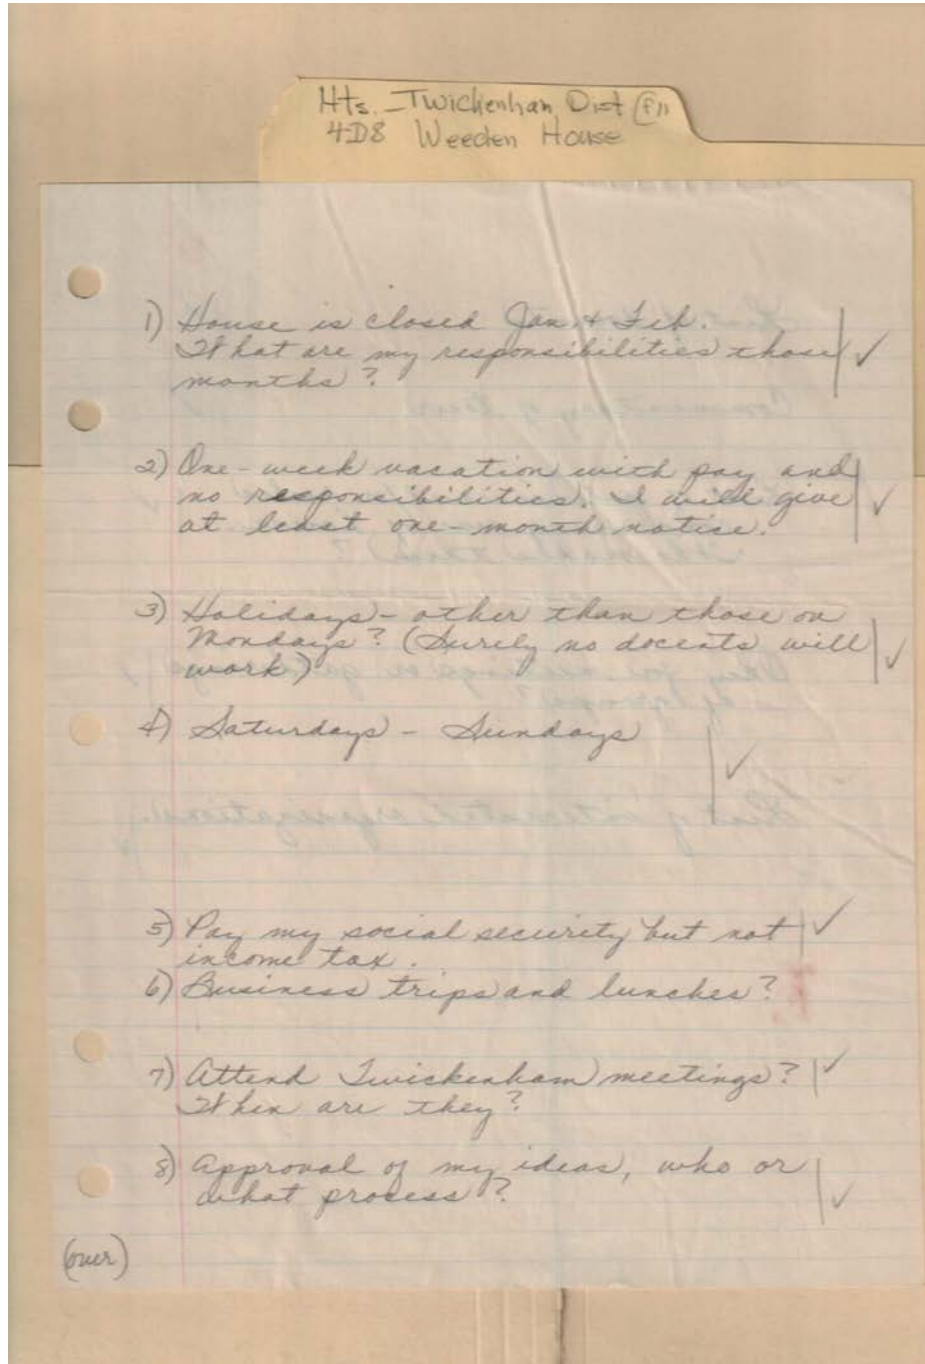 Hts. - Twickenham Dist
4D8 Weeden House
1) House is closed Jan. & Feb.
What are my responsibilities those
months?
2) One-week vacation with pay and
no responsibilities. I will give
at least one-month notice.
3) Holidays - other than those on
Mondays? (Surely no docents will
work)
4) Saturdays - Sundays
5) Pay my social security but not
income tax.
6) Business trips and lunches?
7) Attend Twickenham meetings?
When are they?
8) Approval of my ideas, who or
what process?
(over)